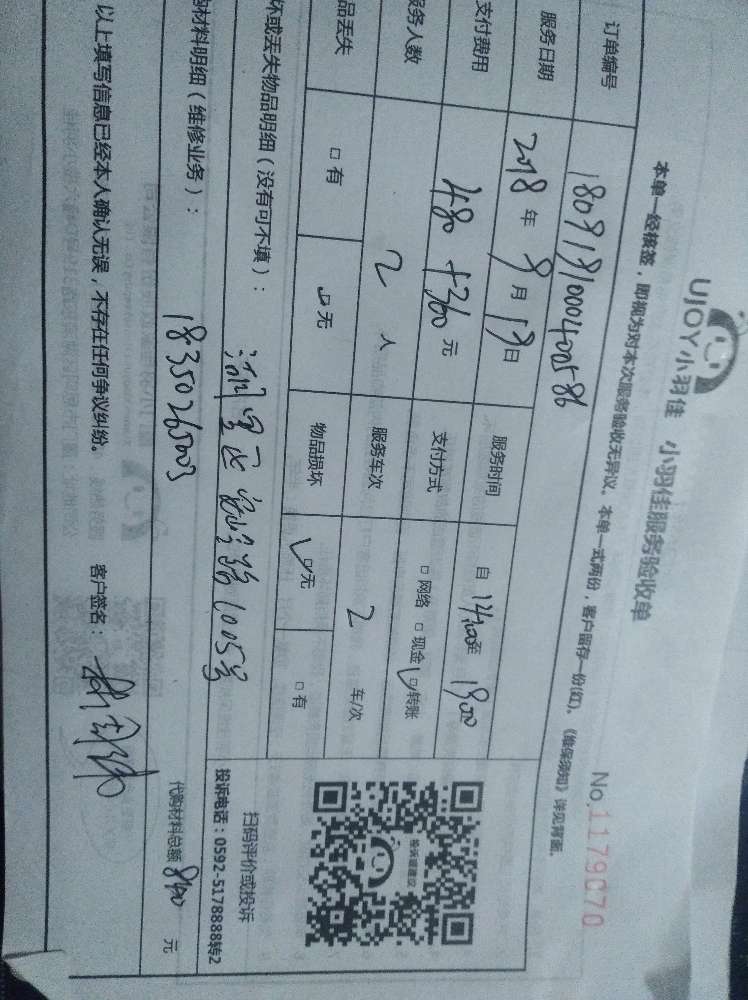 UJOY小羽佳 小羽佳服务验收单
No.1179070
本单一经核签，即视为对本次服务验收无异议。本单一式两份，客户留存一份(红)。《维保须知》详见背面。
订单编号
服务日期 2018 年 9 月 19 日 服务时间 自 14:00 至 18:00
支付费用 480 +360 元 支付方式 □ 网络 □ 现金 ☑ 转账
务人数 2 人 服务车次 2 车/次
品丢失 □ 有 ☑ 无 物品损坏 ☑ 无 □ 有
坏或丢失物品明细（没有可不填）： 1005号
购材料明细（维修业务）： 18350265003
代购材料总额 840 元
以上填写信息已经本人确认无误，不存在任何争议纠纷。 客户签名：
投诉或建议
扫码评价或投诉
投诉电话：0592-5178888转2